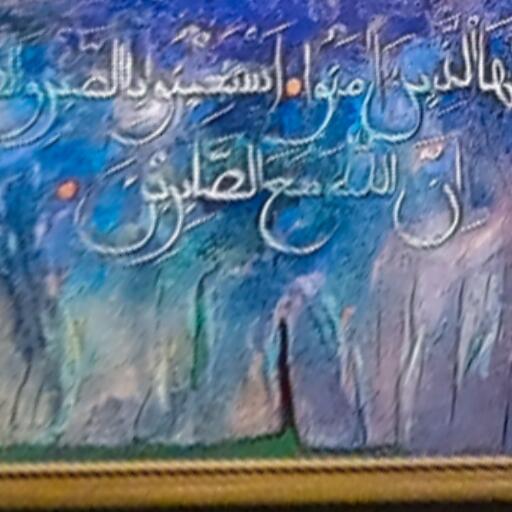 يهَا الَّذِينَ آمَنُوا اسْتَعِينُوا بِالصَّبْرِ وَال
إِنَّ اللَّهَ مَعَ الصَّابِرِينَ